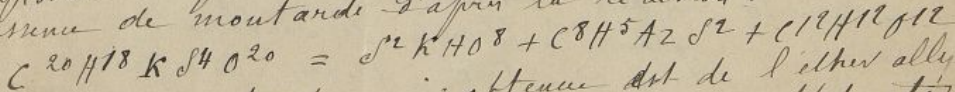 de moutarde d'après la
C20H18KS4O20 = S2KHO8 + C8H5AzS2 + C12H12O12
obtenue est de l'éther ally